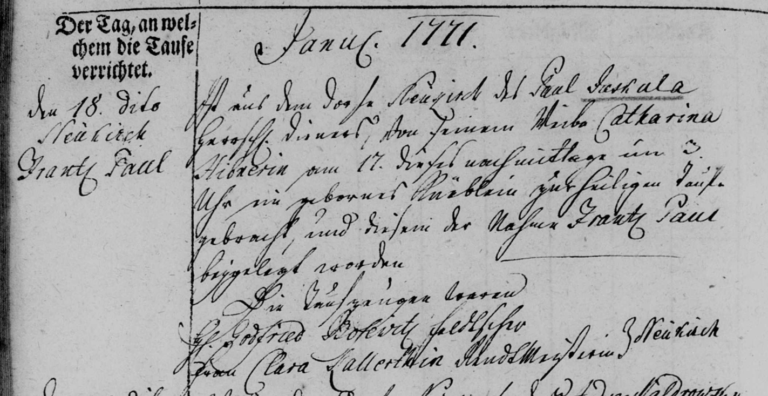 Der Tag, an wel-
chem die Taufe
verrichtet.
Januς. 1771.
den 18. dito
Neukirch
Frantz Paul
Ist aus dem Dorfe Neukirch des Paul Jaskula
herrschl. Dieners, von seinem Weibe Catharina
am 17. dieses nachmittage um 3.
Uhr ein gebornes Knäblein zur heiligen Tauf-
gebracht, und diesem der Nahme Frantz Paul
beygelegt worden
Die Taufzeugen waren
H. Godfried
Frau Clara RendtMeisterin } Neukirch